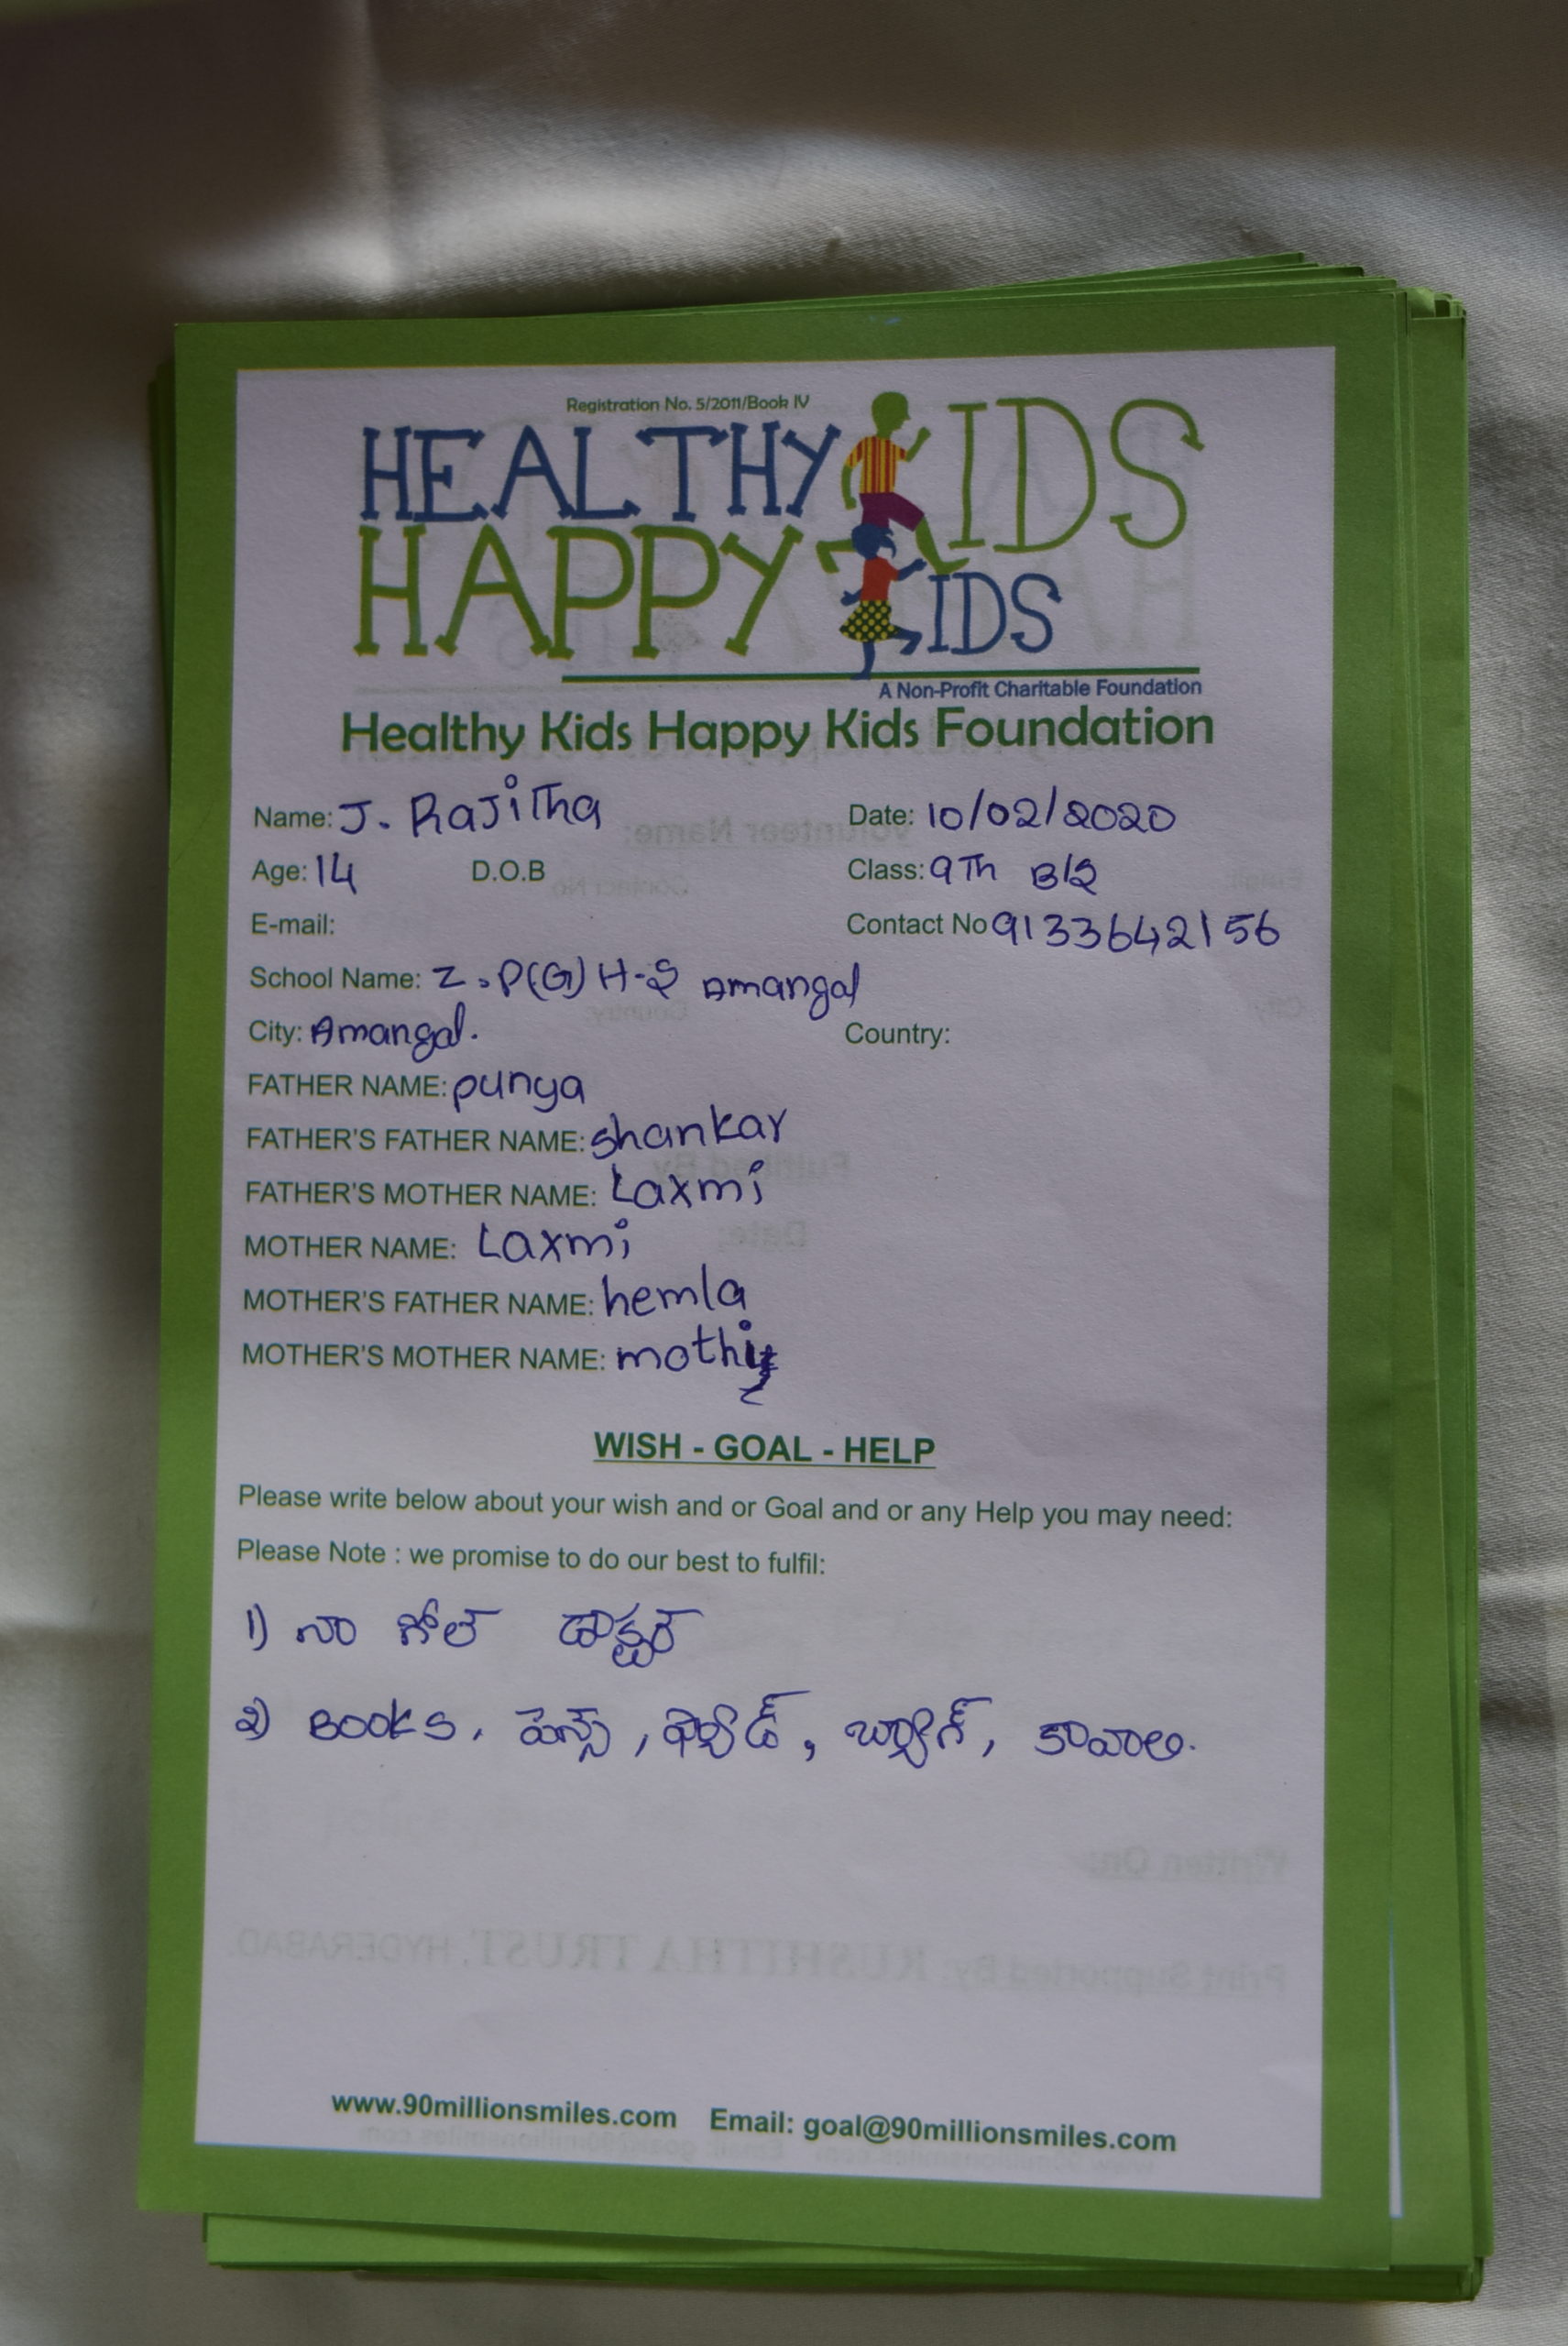 Registration No. 5/2011/Book IV
HEALTHY KIDS
HAPPY KIDS
A Non-Profit Charitable Foundation
Healthy Kids Happy Kids Foundation
Name: J. Rajitha Date: 10/02/2020
Age: 14 D.O.B Class: 9Th B/2
E-mail: Contact No 9133642156
School Name: Z.P(G) H-S Amangal
City: Amangal. Country:
FATHER NAME: punya
FATHER'S FATHER NAME: shankar
FATHER'S MOTHER NAME: Laxmi
MOTHER NAME: Laxmi
MOTHER'S FATHER NAME: hemla
MOTHER'S MOTHER NAME:
WISH - GOAL - HELP
Please write below about your wish and or Goal and or any Help you may need:
Please Note : we promise to do our best to fulfil:
1) నా గోల్ డాక్టర్
2) Books, పెన్స్, ప్యాడ్, బ్యాగ్, కావాలి.
Written On:
Print Supported By: RUSHITHA TRUST, HYDERABAD.
www.90millionsmiles.com Email: goal@90millionsmiles.com